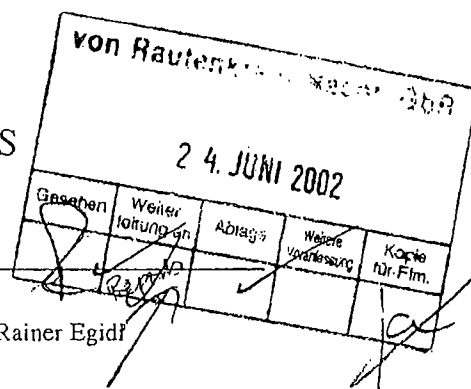 von
S
2 4. JUNI 2002
Gesehen
Weiter
leitung an
Ablage
Weitere
Veranlassung
Kopie
für Fim.
Rainer Egidi